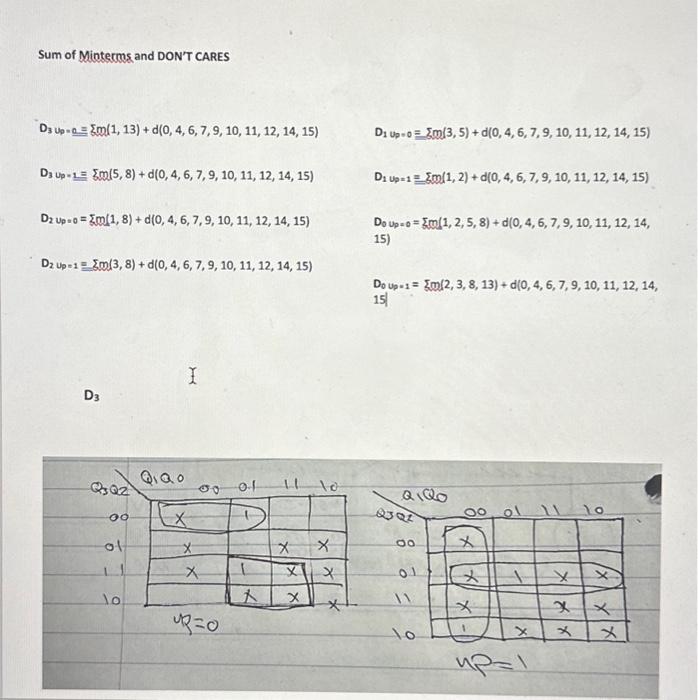 Sum of Minterms and DON'T CARES
D3 Up=0 = Σm(1, 13) + d(0, 4, 6, 7, 9, 10, 11, 12, 14, 15)
D3 Up=1 = Σm(5, 8) + d(0, 4, 6, 7, 9, 10, 11, 12, 14, 15)
D2 Up=0 = Σm(1, 8) + d(0, 4, 6, 7, 9, 10, 11, 12, 14, 15)
D2 Up=1 = Σm(3, 8) + d(0, 4, 6, 7, 9, 10, 11, 12, 14, 15)
D1 Up=0 = Σm(3, 5) + d(0, 4, 6, 7, 9, 10, 11, 12, 14, 15)
D1 Up=1 = Σm(1, 2) + d(0, 4, 6, 7, 9, 10, 11, 12, 14, 15)
D0 Up=0 = Σm(1, 2, 5, 8) + d(0, 4, 6, 7, 9, 10, 11, 12, 14,
15)
D0 Up=1 = Σm(2, 3, 8, 13) + d(0, 4, 6, 7, 9, 10, 11, 12, 14,
15
D3
Q1Q0
Q3Q2 00 01 11 10
00 X 1
01 X X X
11 X 1 X X
10 X X X
UP=0
Q1Q0
Q3Q2 00 01 11 10
00 X
01 X 1 X X
11 X X X
10 1 X X X
UP=1